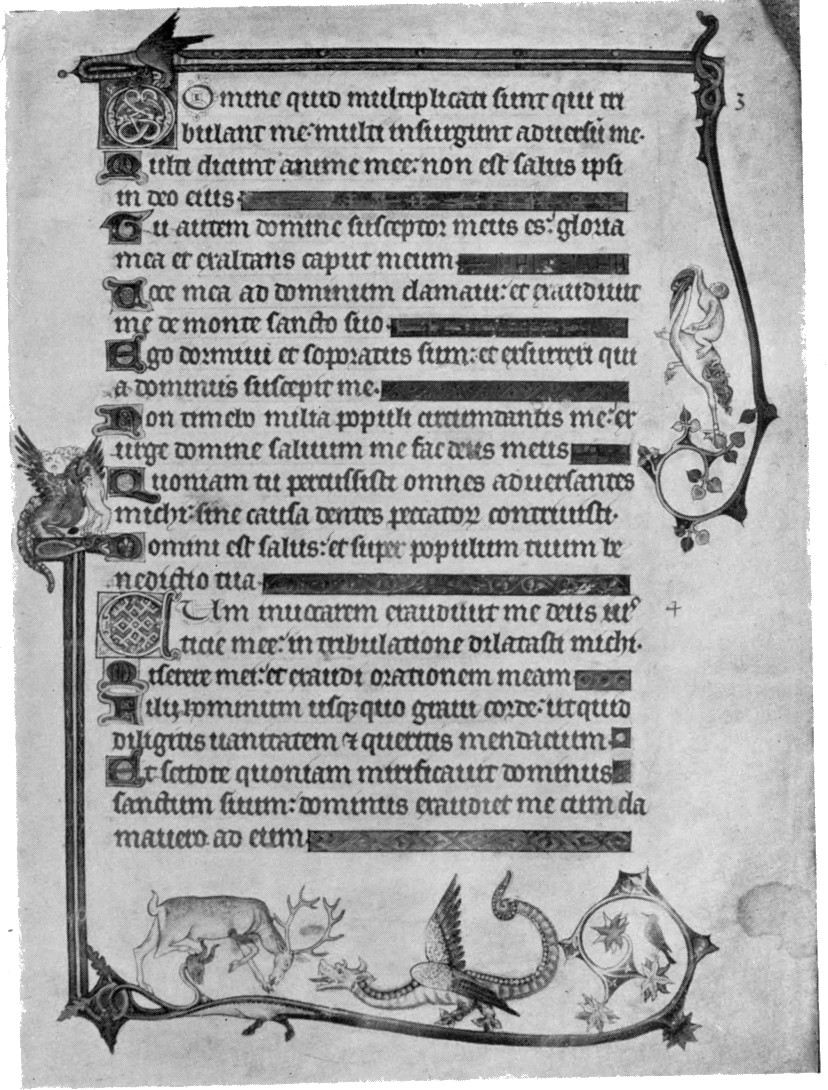 Domine quid multiplicati sunt qui tri
bulant me: multi insurgunt adversū me.
Multi dicunt anime mee: non est salus ipsi
in deo eius.
Tu autem domine susceptor meus es: gloria
mea et exaltans caput meum.
Voce mea ad dominum clamavi: et exaudivit
me de monte sancto suo.
Ego dormivi et soporatus sum: et exsurrexi qui
a dominus suscepit me.
Non timebo milia populi circumdantis me: ex
urge domine salvum me fac deus meus
Quoniam tu percussisti omnes adversantes
michi: sine causa dentes peccatoꝝ contrivisti.
Domini est salus: et super populum tuum be
nedictio tua
Cum invocarem exaudivit me deus ius
ticie mee: in tribulatione dilatasti michi.
Miserere mei: et exaudi orationem meam
Filii hominum usqꝫ quo gravi corde: ut quid
diligitis vanitatem ⁊ queritis mendacium.
Et scitote quoniam mirificavit dominus
sanctum suum: dominus exaudiet me cum cla
mavero ad eum.
3
4